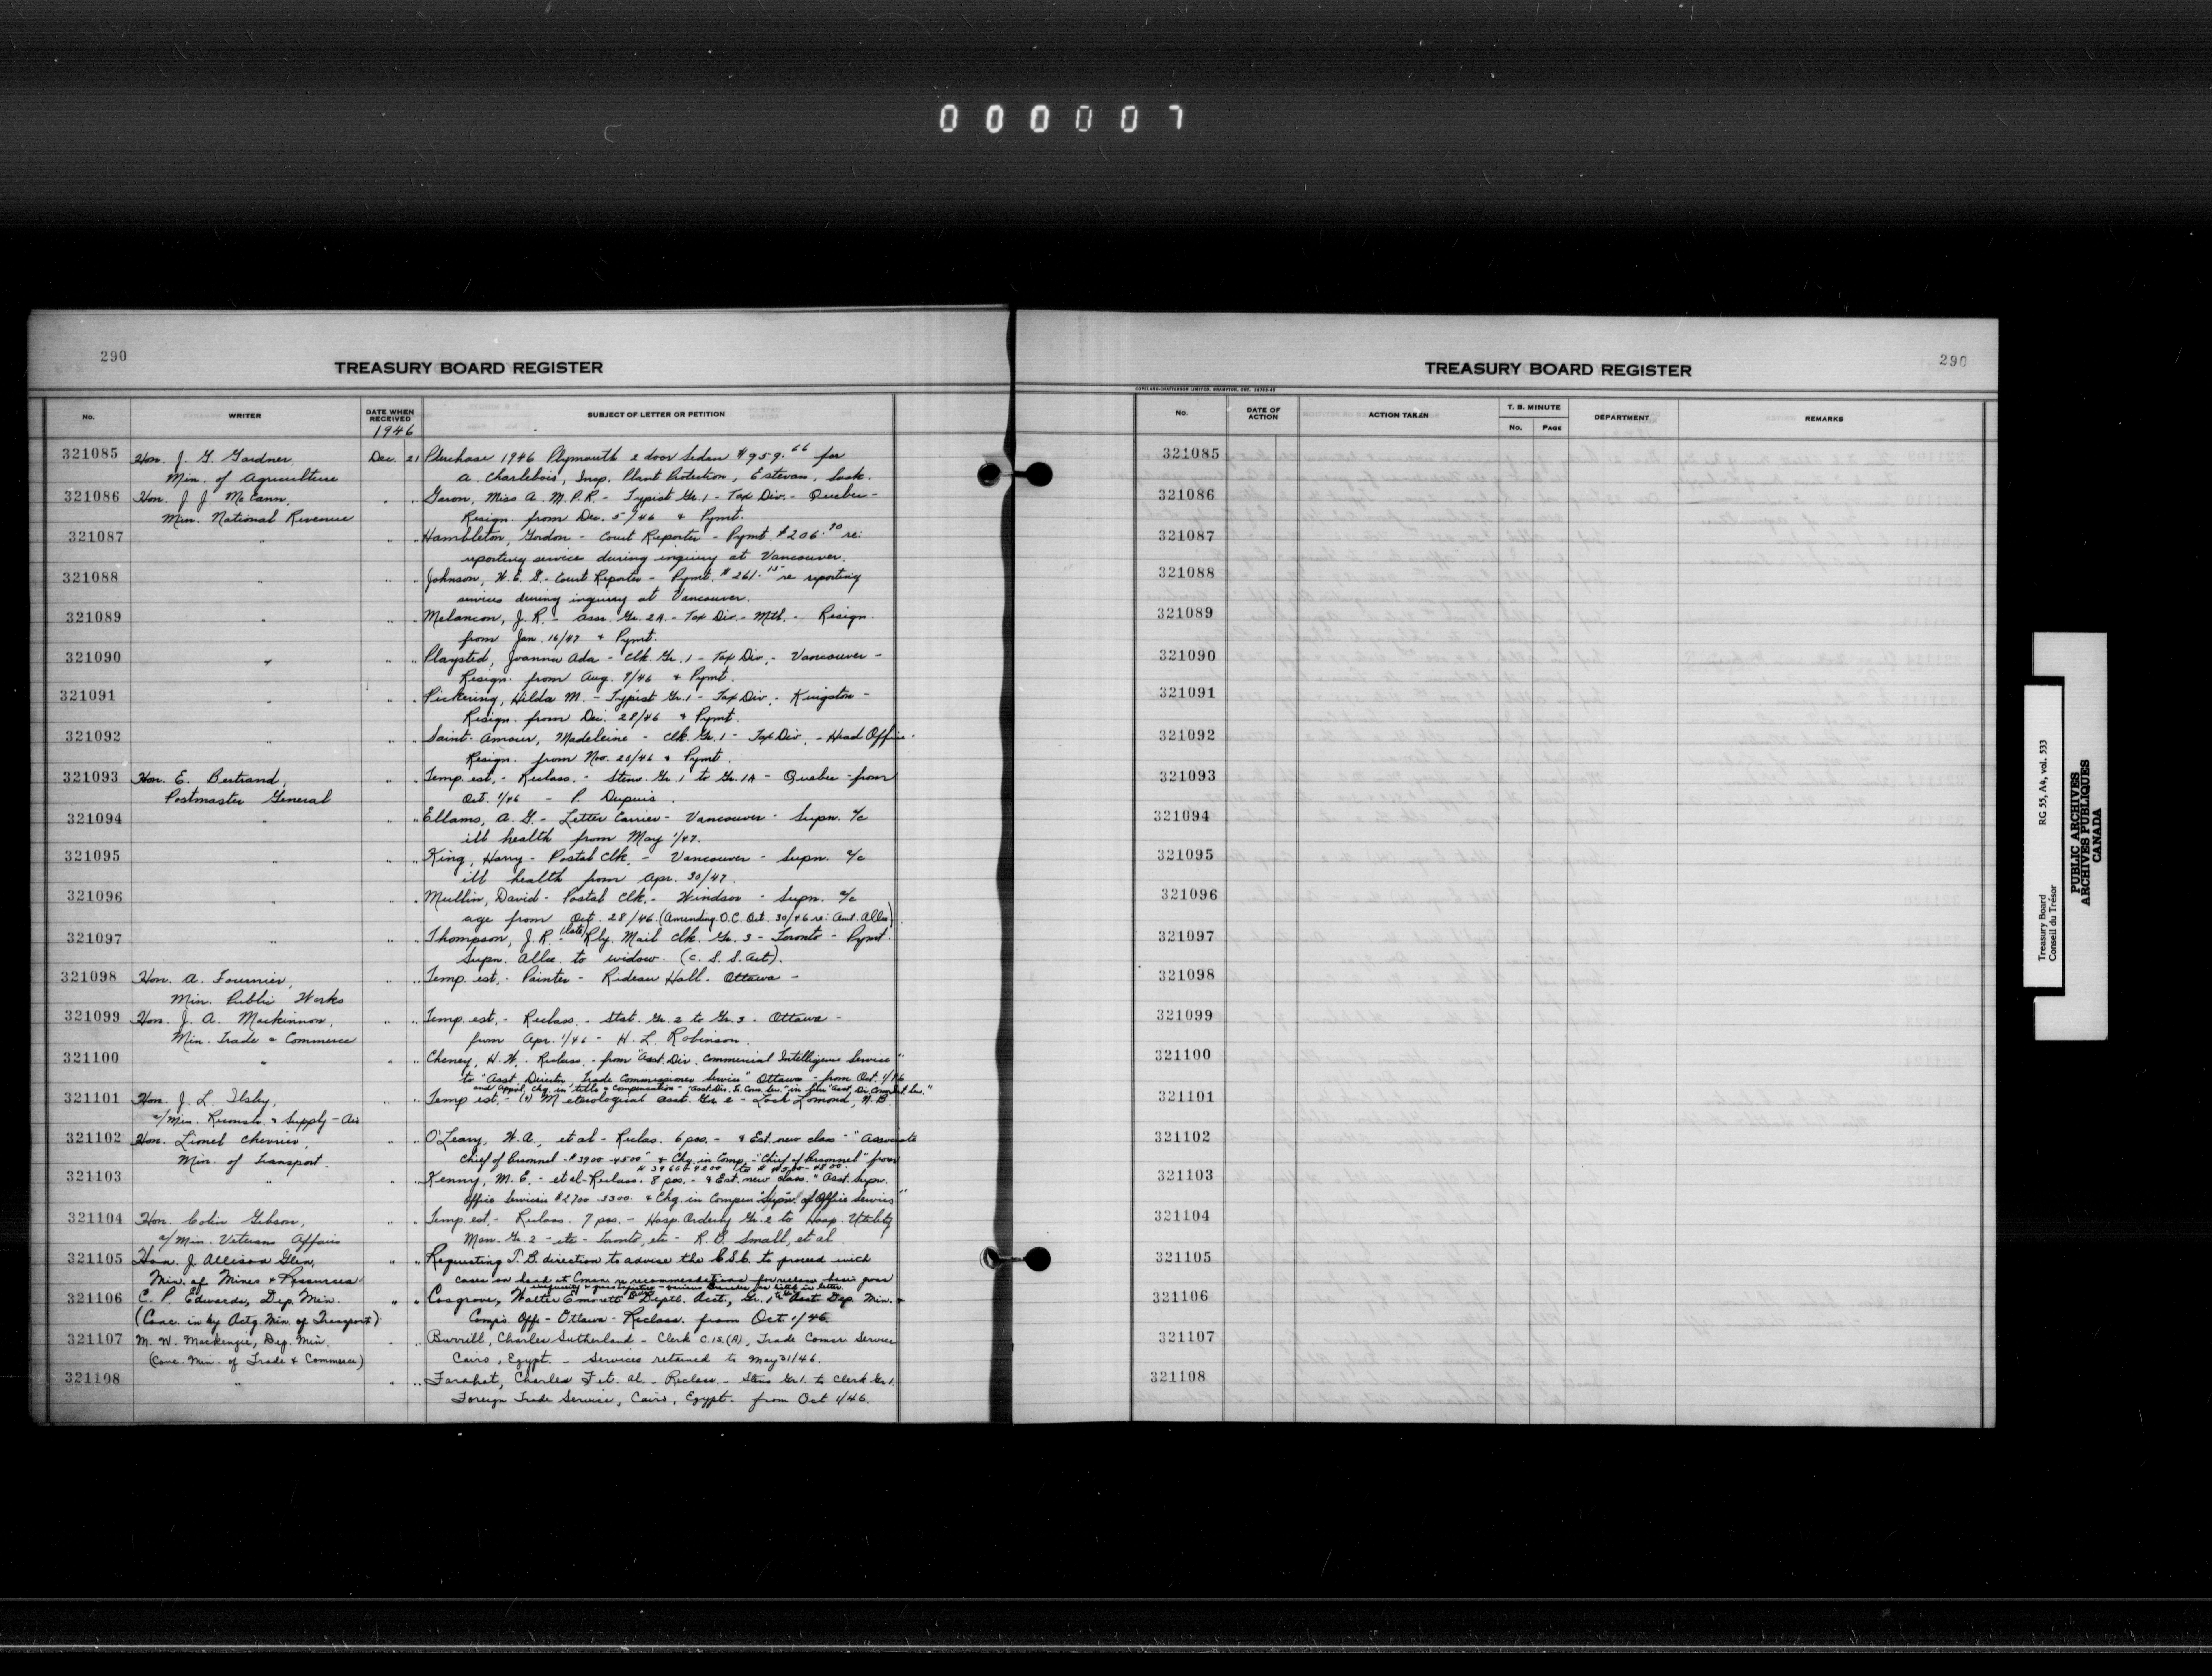 000007
290
TREASURY BOARD REGISTER
No. WRITER DATE WHEN RECEIVED SUBJECT OF LETTER OR PETITION
1946
321085 Hon. J. G. Gardner, Dec. 21 Purchase 1946 Plymouth 2 door Sedan $959.66 for
Min. of Agriculture A. Charlebois, Insp. Plant Protection, Estevan, Sask.
321086 Hon. J. J. McCann, " " Garon, Miss A. M. P. R. - Typist Gr. 1 - Tax Div. - Quebec -
Min. National Revenue Resign. from Dec. 5/46 & Pymt.
321087 " " " Hambleton, Gordon - Court Reporter - Pymt. $206.90 re:
reporting services during inquiry at Vancouver.
321088 " " " Johnson, W. E. G. - Court Reporter - Pymt. $261.15 re reporting
services during inquiry at Vancouver.
321089 " " " Melancon, J. R. - Assr. Gr. 2A - Tax Div. - Mtl. - Resign.
from Jan. 16/47 & Pymt.
321090 " " " Playsted, Joanna Ada - Clk. Gr. 1 - Tax Div. - Vancouver -
Resign. from Aug. 9/46 & Pymt.
321091 " " " Pickering, Hilda M. - Typist Gr. 1 - Tax Div. - Kingston -
Resign. from Dec. 28/46 & Pymt.
321092 " " " Saint-Amour, Madeleine - Clk. Gr. 1 - Tax Div. - Head Office -
Resign. from Nov. 20/46 & Pymt.
321093 Hon. E. Bertrand, " " Temp. est. - Reclass. - Steno Gr. 1 to Gr. 1A - Quebec - from
Postmaster General Oct. 1/46 - P. Dupuis.
321094 " " " Ellams, A. G. - Letter Carrier - Vancouver - Supn. a/c
ill health from May 1/47.
321095 " " " King, Harry - Postal Clk. - Vancouver - Supn. a/c
ill health from Apr. 30/47.
321096 " " " Mullin, David - Postal Clk. - Windsor - Supn. a/c
age from Oct. 28/46. (Amending O.C. Oct. 30/46 re: Amt. Allce)
321097 " " " Thompson, J. R. (late) Rly. Mail Clk. Gr. 3 - Toronto - Pymt.
Supn. Allce to widow. (C. S. S. Act).
321098 Hon. A. Fournier, " " Temp. est. - Painter - Rideau Hall. Ottawa -
Min. Public Works
321099 Hon. J. A. Mackinnon, " " Temp. est. - Reclass. - Stat. Gr. 2 to Gr. 3 - Ottawa -
Min. Trade & Commerce from Apr. 1/46 - H. L. Robinson.
321100 " " " Cheney, H. W. - Reclass. - from "Asst. Div. Commercial Intelligence Service"
to "Asst. Director, Trade Commissioner Service" Ottawa - from Oct. 1/46
and appvl. chg. in title & compensation - "Asst. Dir. T. Com. Ser." in lieu "Asst. Dir. Com. Int. Ser."
321101 Hon. J. L. Ilsley, " " Temp est. - (1) Meteorological Asst. Gr. 2 - Loch Lomond, N.B.
a/Min. Reconstr. & Supply - Air
321102 Hon. Lionel Chevrier, " " O'Leary, W. A., et al - Reclas. 6 pos. - & Est. new class - "Associate
Min. of Transport. Chief of Personnel - $3900 - 4500" & Chg. in Comp. - "Chief of Personnel" from
$3900 - 4200 to $4200 - 4800.
321103 " " " Kenny, M. E. - et al - Reclass. 8 pos. - & Est. new class. "Asst. Supvr.
Office Services $2700 - 3300. & Chg. in Compen "Supvr. of Office Services"
321104 Hon. Colin Gibson, " " Temp. est. - Reclass. 7 pos. - Hosp. Orderly Gr. 2 to Hosp. Utility
a/Min. Veterans Affairs Man. Gr. 2 - etc - Toronto, etc - R. B. Small, et al.
321105 Hon. J. Allison Glen, " " Requesting T. B. direction to advise the C.S.C. to proceed with
Min. of Mines & Resources cases on hand at Comsn. re recommendations for reclass. basis gross
321106 C. P. Edwards, Dep. Min. " " Cosgrove, Walter Emmett - Deptl. Acct., Gr. 1 to Asst. Dep. Min. &
(Conc. in by Actg. Min. of Transport) Comp's. Off. - Ottawa - Reclass. from Oct. 1/46.
321107 M. W. Mackenzie, Dep. Min. " " Burrill, Charles Sutherland - Clerk C.I.S. (A), Trade Comsr. Service
(Conc. Min. of Trade & Commerce) Cairo, Egypt. - Services retained to May 31/46.
321108 " " " Farahat, Charles F. et. al. - Reclass. - Steno Gr. 1. to Clerk Gr. 1.
Foreign Trade Service, Cairo, Egypt. from Oct 1/46.
290
TREASURY BOARD REGISTER
COPELAND-CHATTERSON LIMITED, BRAMPTON, ONT.
No. DATE OF ACTION ACTION TAKEN T. B. MINUTE No. PAGE DEPARTMENT REMARKS
321085
321086
321087
321088
321089
321090
321091
321092
321093
321094
321095
321096
321097
321098
321099
321100
321101
321102
321103
321104
321105
321106
321107
321108
Treasury Board RG 55, A4, vol. 533
Conseil du Trésor
PUBLIC ARCHIVES
ARCHIVES PUBLIQUES
CANADA